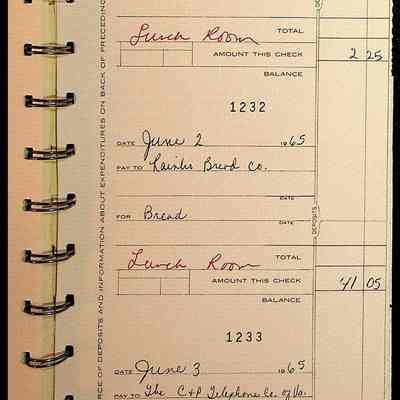 Lunch Room TOTAL
AMOUNT THIS CHECK 2 25
BALANCE
1232
DATE June 2 1965
PAY TO Rainbo Bread Co.
DATE
FOR Bread DATE
DEPOSITS
Lunch Room TOTAL
AMOUNT THIS CHECK 41 05
BALANCE
1233
DATE June 3 1965
PAY TO The C & P Telephone Co. of Va.
OF DEPOSITS AND INFORMATION ABOUT EXPENDITURES ON BACK OF PRECEDING